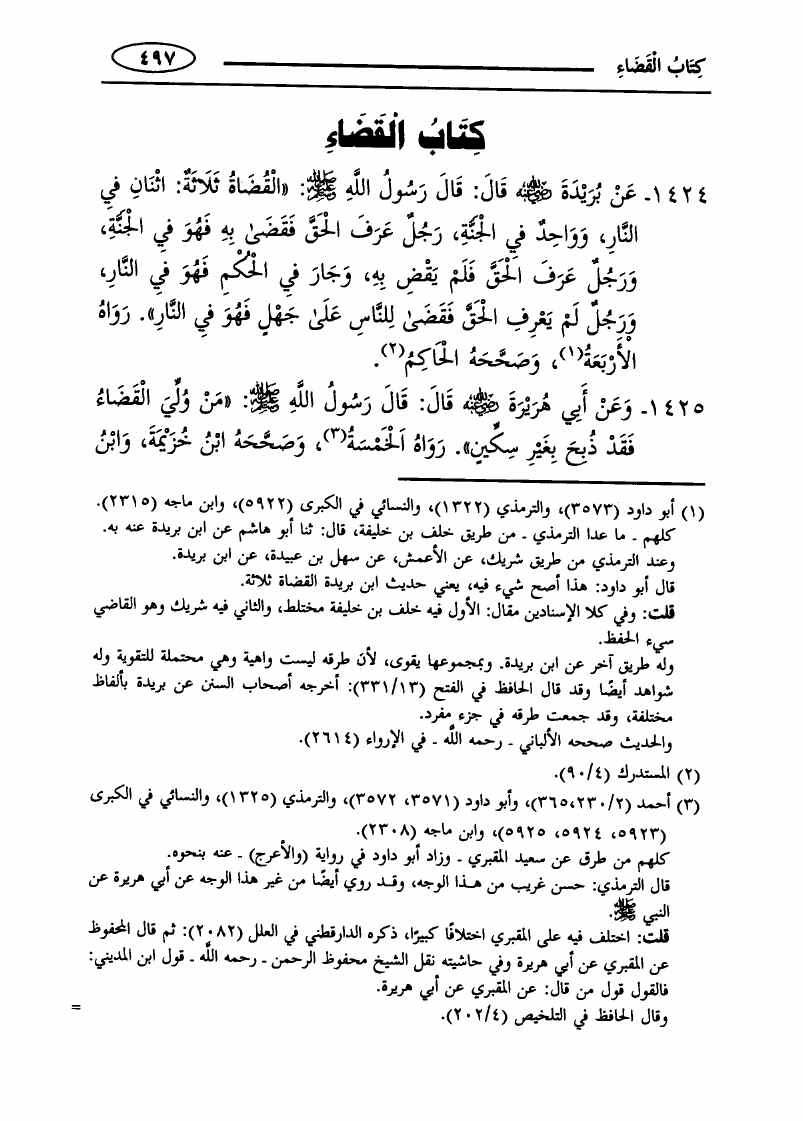 كِتَابُ الْقَضَاءِ
٤٩٧
كِتَابُ الْقَضَاءِ
١٤٢٤ـ عَنْ بُرَيْدَةَ رضي الله عنه قَالَ: قَالَ رَسُولُ اللَّهِ ﷺ: «الْقُضَاةُ ثَلَاثَةٌ: اثْنَانِ فِي
النَّارِ، وَوَاحِدٌ فِي الْجَنَّةِ، رَجُلٌ عَرَفَ الْحَقَّ فَقَضَىٰ بِهِ فَهُوَ فِي الْجَنَّةِ،
وَرَجُلٌ عَرَفَ الْحَقَّ فَلَمْ يَقْضِ بِهِ، وَجَارَ فِي الْحُكْمِ فَهُوَ فِي النَّارِ،
وَرَجُلٌ لَمْ يَعْرِفِ الْحَقَّ فَقَضَىٰ لِلنَّاسِ عَلَىٰ جَهْلٍ فَهُوَ فِي النَّارِ». رَوَاهُ
الْأَرْبَعَةُ(١)، وَصَحَّحَهُ الْحَاكِمُ(٢).
١٤٢٥ـ وَعَنْ أَبِي هُرَيْرَةَ رضي الله عنه قَالَ: قَالَ رَسُولُ اللَّهِ ﷺ: «مَنْ وُلِّيَ الْقَضَاءُ
فَقَدْ ذُبِحَ بِغَيْرِ سِكِّينٍ». رَوَاهُ اَلْخَمْسَةُ(٣)، وَصَحَّحَهُ ابْنُ خُزَيْمَةَ، وَابْنُ
(١) أبو داود (٣٥٧٣)، والترمذي (١٣٢٢)، والنسائي في الكبرى (٥٩٢٢)، وابن ماجه (٢٣١٥).
كلهم ـ ما عدا الترمذي ـ من طريق خلف بن خليفة، قال: ثنا أبو هاشم عن ابن بريدة عنه به.
وعند الترمذي من طريق شريك، عن الأعمش، عن سهل بن عبيدة، عن ابن بريدة.
قال أبو داود: هذا أصح شيء فيه، يعني حديث ابن بريدة القضاة ثلاثة.
قلت: وفي كلا الإسنادين مقال: الأول فيه خلف بن خليفة مختلط، والثاني فيه شريك وهو القاضي
سيء الحفظ.
وله طريق آخر عن ابن بريدة. وبمجموعها يقوى، لأن طرقه ليست واهية وهي محتملة للتقوية وله
شواهد أيضًا وقد قال الحافظ في الفتح (٣٣١/١٣): أخرجه أصحاب السنن عن بريدة بألفاظ
مختلفة، وقد جمعت طرقه في جزء مفرد.
والحديث صححه الألباني ـ رحمه الله ـ في الإرواء (٢٦١٤).
(٢) المستدرك (٩٠/٤).
(٣) أحمد (٣٦٥،٢٣٠/٢)، وأبو داود (٣٥٧١، ٣٥٧٢)، والترمذي (١٣٢٥)، والنسائي في الكبرى
(٥٩٢٣، ٥٩٢٤، ٥٩٢٥)، وابن ماجه (٢٣٠٨).
كلهم من طرق عن سعيد المقبري ـ وزاد أبو داود في رواية (والأعرج) ـ عنه بنحوه.
قال الترمذي: حسن غريب من هـذا الوجه، وقـد روي أيضًا من غير هذا الوجه عن أبي هريرة عن
النبي ﷺ.
قلت: اختلف فيه على المقبري اختلافًا كبيرًا، ذكره الدارقطني في العلل (٢٠٨٢): ثم قال المحفوظ
عن المقبري عن أبي هريرة وفي حاشيته نقل الشيخ محفوظ الرحمن ـ رحمه الله ـ قول ابن المديني:
فالقول قول من قال: عن المقبري عن أبي هريرة.
وقال الحافظ في التلخيص (٢٠٢/٤).
=